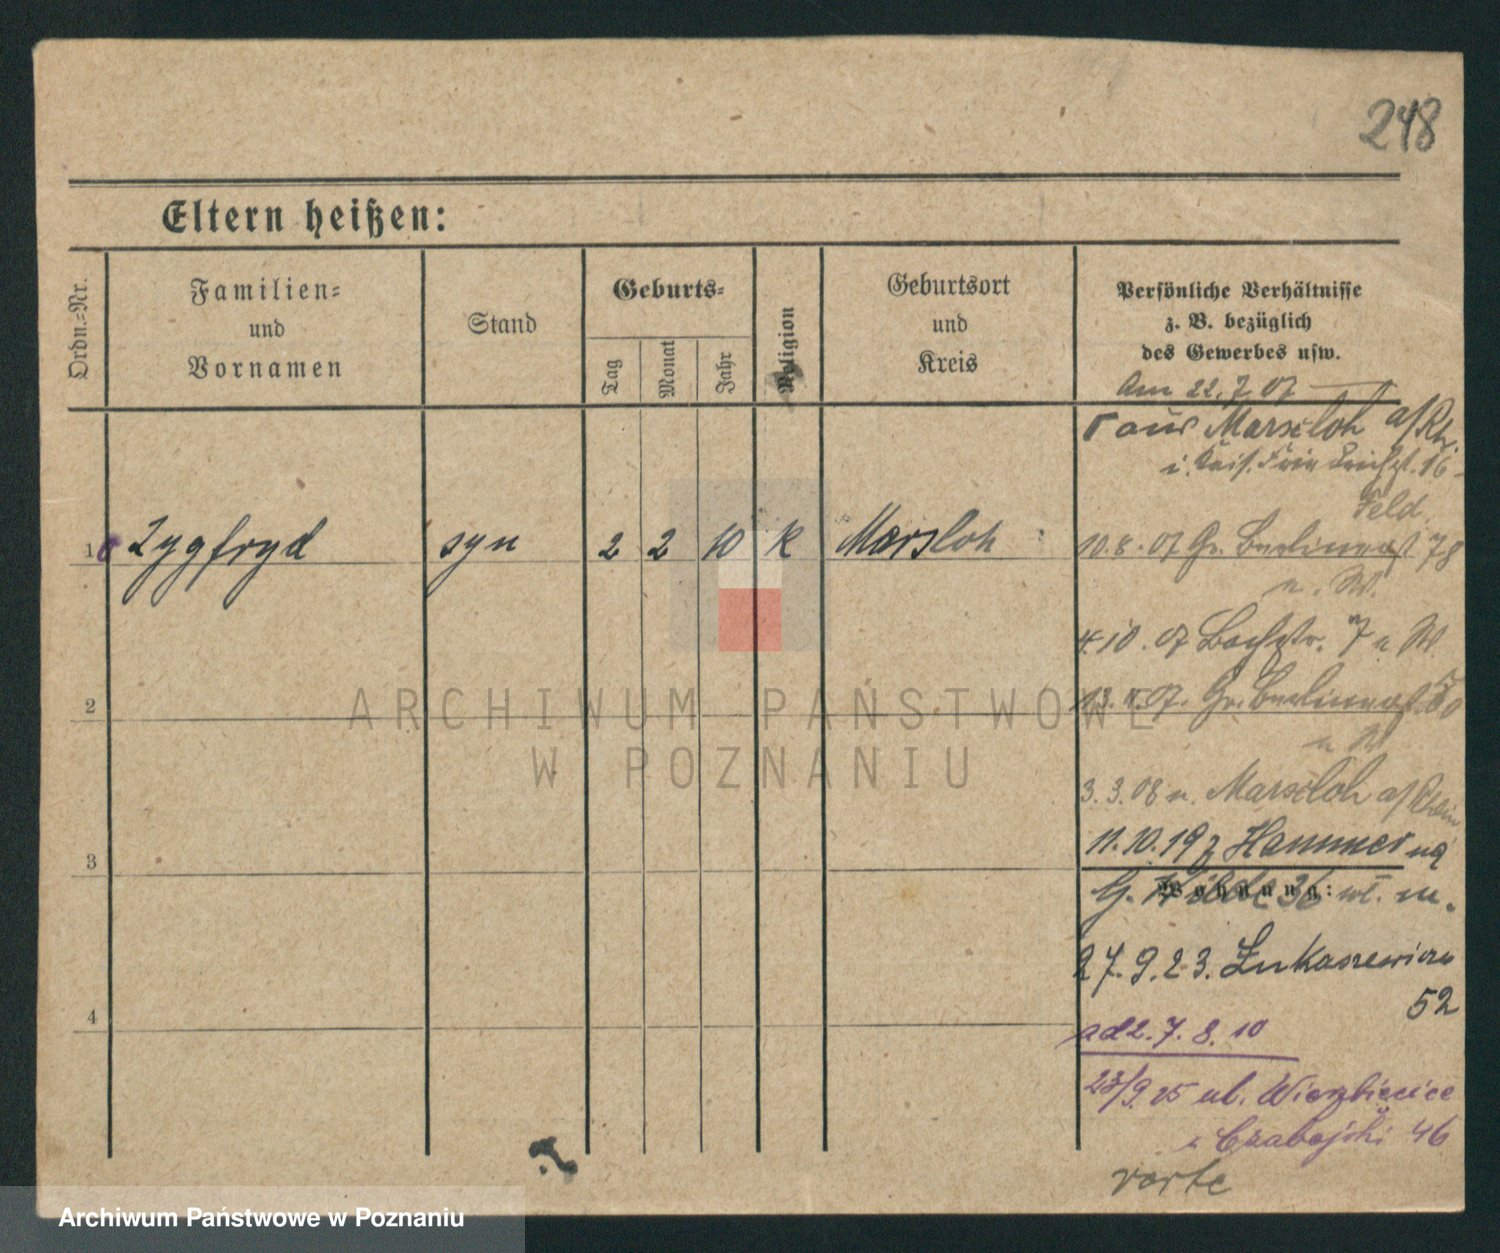 248
Eltern heißen:
Ordn.=Nr.
Familien=
und
Vornamen
Stand
Geburts=
Tag
Monat
Jahr
Religion
Geburtsort
und
Kreis
Persönliche Verhältnisse
z. B. bezüglich
des Gewerbes usw.
Am 22.7.07
aus Marxloh a/Rh.
16
Feld
1 Zygfryd syn 2 2 10 K Marsloh
10.8.07 Gr. Berlinerst 78
n. W.
4.10.07 Bachstr. 7 n W.
13. 11. 07. Gr. Berlinerst. 50
n W
2
3.3.08 n. Marxloh a/Rhein
11.10.19 z Hammer
3
Wohnung:
G. 36 m.
27.9.23. Łukaszewicza
52
4
ad2. 7. 8. 10
23/9 25 ul. Wierzbięcice
Czabajski 46
verte
ARCHIWUM PAŃSTWOWE
W POZNANIU
Archiwum Państwowe w Poznaniu